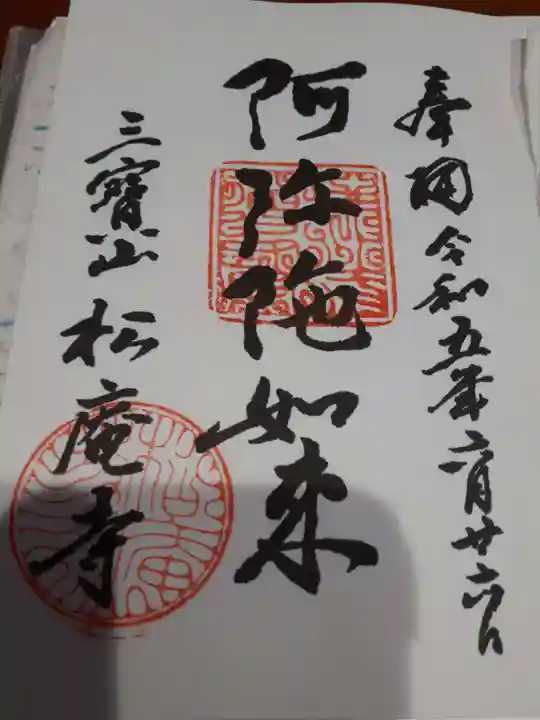 奉 令和五年六月廿六日
阿弥陀如来
三寶山 松庵寺